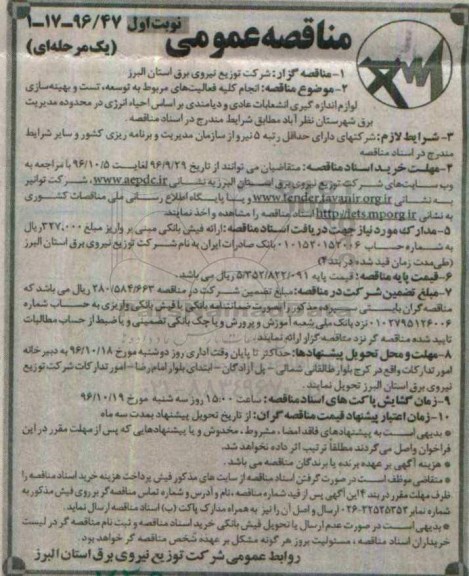 نوبت اول ۹۶/۴۷-۱۷-۱
مناقصه عمومی
(یک مرحله‌ای)
۱-مناقصه گزار: شرکت توزیع نیروی برق استان البرز
۲-موضوع مناقصه: انجام کلیه فعالیت‌های مربوط به توسعه، تست و بهینه‌سازی
لوازم اندازه گیری انشعابات عادی و دیماندی بر اساس احیاء انرژی در محدوده مدیریت
برق شهرستان نظرآباد مطابق شرایط مندرج در اسناد مناقصه.
۳-شرایط لازم: شرکتهای دارای حداقل رتبه ۵ نیرو از سازمان مدیریت و برنامه ریزی کشور و سایر شرایط
مندرج در اسناد مناقصه
۴-مهلت خرید اسناد مناقصه: متقاضیان می توانند از تاریخ ۹۶/۹/۲۹ لغایت ۹۶/۱۰/۵ با مراجعه به
وب سایت‌های شرکت توزیع نیروی برق استان البرز به نشانی www.aepdc.ir، شرکت توانیر
به نشانی www.tender.tavanir.org.ir و یا پایگاه اطلاع رسانی ملی مناقصات کشوری
به نشانی http://iets.mporg.ir اسناد مناقصه را مشاهده و اخذ نمایند.
۵-مدارک مورد نیاز جهت دریافت اسناد مناقصه: ارائه فیش بانکی مبنی بر واریز مبلغ ۳۲۷،۰۰۰ ریال
به شماره حساب ۰۱۰۱۵۲۰۱۵۲۰۰۶ بانک صادرات ایران به نام شرکت توزیع نیروی برق استان البرز
(طی مدت زمان قید شده در بند ۴)
۶-قیمت پایه مناقصه: قیمت پایه ۵/۳۵۲/۸۲۲/۰۹۱ ریال می باشد.
۷-مبلغ تضمین شرکت در مناقصه: مبلغ تضمین شرکت در مناقصه ۲۸۰/۵۸۴/۶۶۳ ریال می باشد که
مناقصه گران بایستی سپرده مذکور را بصورت ضمانتنامه بانکی یا فیش بانکی واریزی به حساب شماره
۰۱۰۲۷۹۵۱۲۶۰۰۶ نزد بانک ملی شعبه آموزش و پرورش و یا چک بانکی تضمینی و یا ضبط از حساب مطالبات
تایید شده مناقصه گر نزد مناقصه گزار ارائه نمایند.
۸-مهلت و محل تحویل پیشنهادها: حداکثر تا پایان وقت اداری روز دوشنبه مورخ ۹۶/۱۰/۱۸ به دبیرخانه
امور تدارکات واقع در کرج بلوار طالقانی شمالی - پل آزادگان - ابتدای بلوار امام رضا - امور تدارکات شرکت توزیع
نیروی برق استان البرز تحویل نمایند.
۹-زمان گشایش پاکت های اسناد مناقصه: ساعت ۱۵:۰۰ روز سه شنبه مورخ ۹۶/۱۰/۱۹
۱۰-زمان اعتبار پیشنهاد قیمت مناقصه گران: از تاریخ تحویل پیشنهاد بمدت سه ماه
* بدیهی است به پیشنهادهای فاقد امضا، مشروط، مخدوش و یا پیشنهادهایی که پس از مهلت مقرر در این
فراخوان واصل می گردند مطلقاً ترتیب اثر داده نخواهد شد.
* هزینه آگهی بر عهده برنده یا برندگان مناقصه می باشد.
* متقاضی موظف است در صورت گرفتن اسناد مناقصه از سایت های مذکور فیش پرداخت هزینه خرید اسناد مناقصه را
ظرف مهلت مقرر در بند ۴ این آگهی پس از قید شماره مناقصه، نام و آدرس و شماره تماس مناقصه گر بر روی فیش مذکور به
شماره نمابر ۳۲۵۲۵۳۵۲-۰۲۶ ارسال و اصل آن را نیز به همراه مدارک پاکت (ب) اسناد مناقصه ارسال نماید.
* بدیهی است در صورت عدم ارسال یا تحویل فیش بانکی خرید اسناد مناقصه و ثبت نام مناقصه گر در لیست
خریداران اسناد مناقصه، مسئولیت بروز هر گونه مشکل بر عهده شخص مناقصه گر خواهد بود.
روابط عمومی شرکت توزیع نیروی برق استان البرز